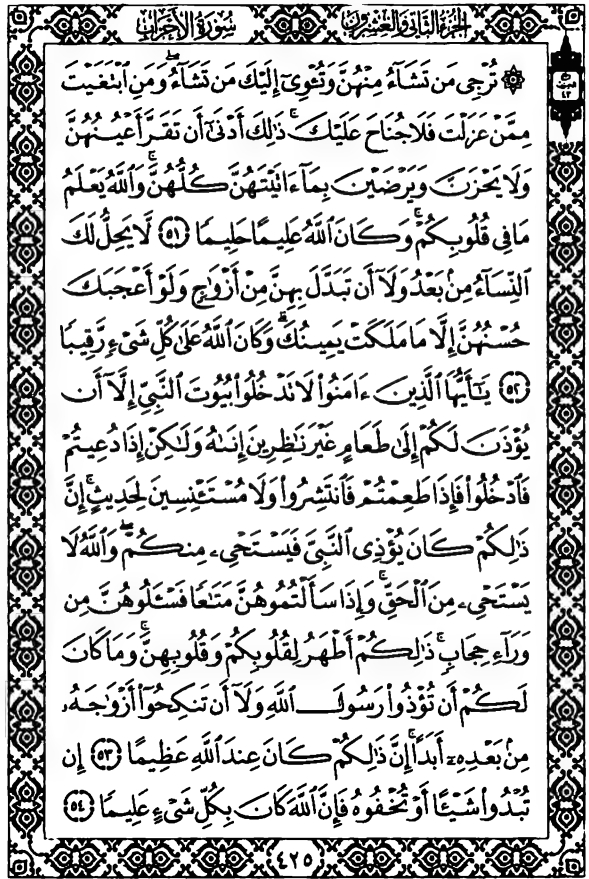 الجزء الثاني والعشرون سورة الأحزاب
۞ تُرْجِى مَن تَشَآءُ مِنْهُنَّ وَتُـْٔوِىٓ إِلَيْكَ مَن تَشَآءُۖ وَمَنِ ٱبْتَغَيْتَ
مِمَّنْ عَزَلْتَ فَلَا جُنَاحَ عَلَيْكَۚ ذَٰلِكَ أَدْنَىٰٓ أَن تَقَرَّ أَعْيُنُهُنَّ
وَلَا يَحْزَنَّ وَيَرْضَيْنَ بِمَآ ءَاتَيْتَهُنَّ كُلُّهُنَّۚ وَٱللَّهُ يَعْلَمُ
مَا فِى قُلُوبِكُمْۚ وَكَانَ ٱللَّهُ عَلِيمًا حَلِيمًا ٥١ لَّا يَحِلُّ لَكَ
ٱلنِّسَآءُ مِنۢ بَعْدُ وَلَآ أَن تَبَدَّلَ بِهِنَّ مِنْ أَزْوَٰجٍ وَلَوْ أَعْجَبَكَ
حُسْنُهُنَّ إِلَّا مَا مَلَكَتْ يَمِينُكَۗ وَكَانَ ٱللَّهُ عَلَىٰ كُلِّ شَىْءٍ رَّقِيبًا
٥٢ يَٰٓأَيُّهَا ٱلَّذِينَ ءَامَنُوا۟ لَا تَدْخُلُوا۟ بُيُوتَ ٱلنَّبِىِّ إِلَّآ أَن
يُؤْذَنَ لَكُمْ إِلَىٰ طَعَامٍ غَيْرَ نَٰظِرِينَ إِنَىٰهُ وَلَٰكِنْ إِذَا دُعِيتُمْ
فَٱدْخُلُوا۟ فَإِذَا طَعِمْتُمْ فَٱنتَشِرُوا۟ وَلَا مُسْتَـْٔنِسِينَ لِحَدِيثٍۚ إِنَّ
ذَٰلِكُمْ كَانَ يُؤْذِى ٱلنَّبِىَّ فَيَسْتَحْىِۦ مِنكُمْۖ وَٱللَّهُ لَا
يَسْتَحْىِۦ مِنَ ٱلْحَقِّۚ وَإِذَا سَأَلْتُمُوهُنَّ مَتَٰعًا فَسْـَٔلُوهُنَّ مِن
وَرَآءِ حِجَابٍۚ ذَٰلِكُمْ أَطْهَرُ لِقُلُوبِكُمْ وَقُلُوبِهِنَّۚ وَمَا كَانَ
لَكُمْ أَن تُؤْذُوا۟ رَسُولَ ٱللَّهِ وَلَآ أَن تَنكِحُوٓا۟ أَزْوَٰجَهُۥ
مِنۢ بَعْدِهِۦٓ أَبَدًاۚ إِنَّ ذَٰلِكُمْ كَانَ عِندَ ٱللَّهِ عَظِيمًا ٥٣ إِن
تُبْدُوا۟ شَيْـًٔا أَوْ تُخْفُوهُ فَإِنَّ ٱللَّهَ كَانَ بِكُلِّ شَىْءٍ عَلِيمًا ٥٤
٤٢٥